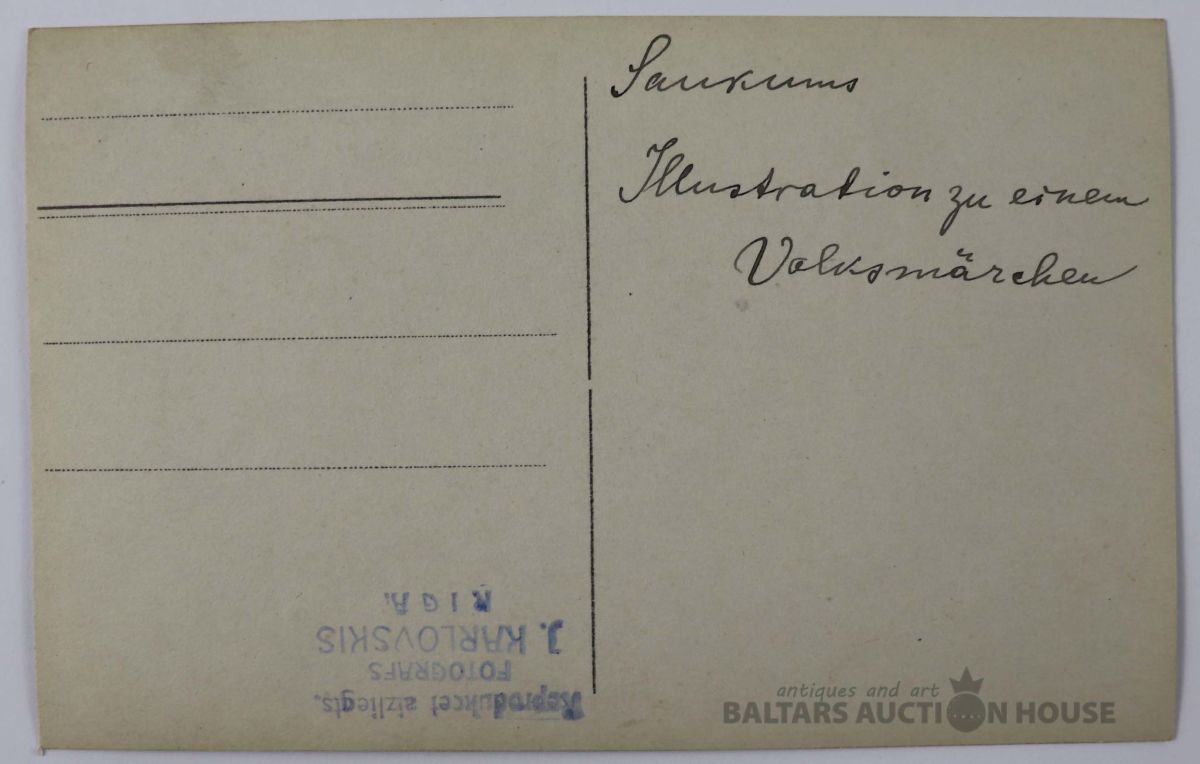 Saukums
Illustration zu einem
Volksmärchen
Reproducēt aizliegts.
FOTOGRAFS
J. KARLOVSKIS
RIGA.
antiques and art
BALTARS AUCTION HOUSE